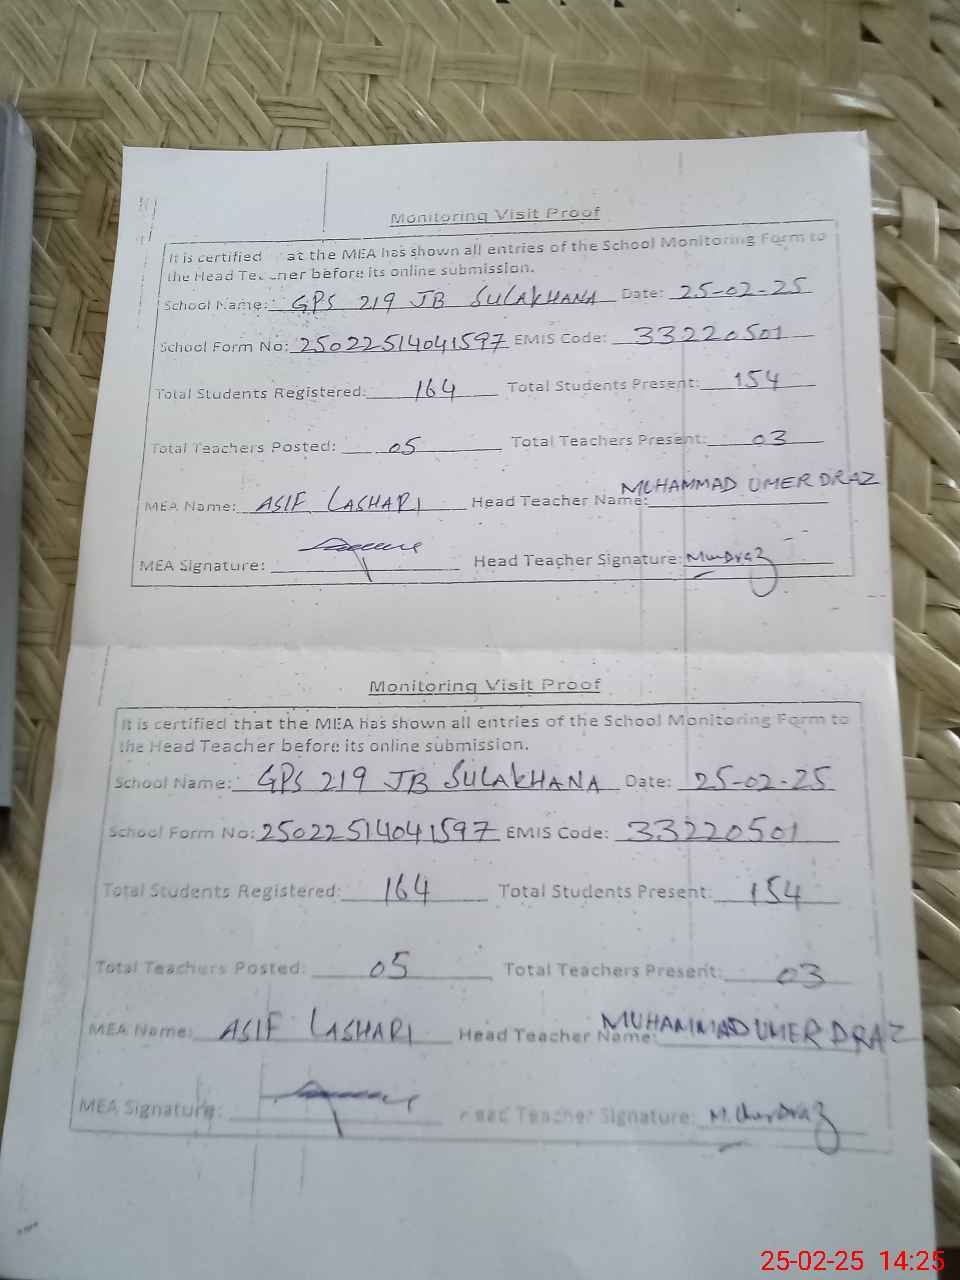 Monitoring Visit Proof
It is certified at the MEA has shown all entries of the School Monitoring Form to
the Head Teacher before its online submission.
School Name: GPS 219 JB SULAKHANA Date: 25-02-25
School Form No: 25022514041597 EMIS Code: 33220501
Total Students Registered: 164 Total Students Present: 154
Total Teachers Posted: 05 Total Teachers Present: 03
MEA Name: ASIF LASHARI Head Teacher Name: MUHAMMAD UMER DRAZ
MEA Signature: Head Teacher Signature:
Monitoring Visit Proof
It is certified that the MEA has shown all entries of the School Monitoring Form to
the Head Teacher before its online submission.
School Name: GPS 219 JB SULAKHANA Date: 25-02-25
School Form No: 25022514041597 EMIS Code: 33220501
Total Students Registered: 164 Total Students Present: 154
Total Teachers Posted: 05 Total Teachers Present: 03
MEA Name: ASIF LASHARI Head Teacher Name: MUHAMMAD UMER DRAZ
MEA Signature: Head Teacher Signature:
25-02-25 14:25